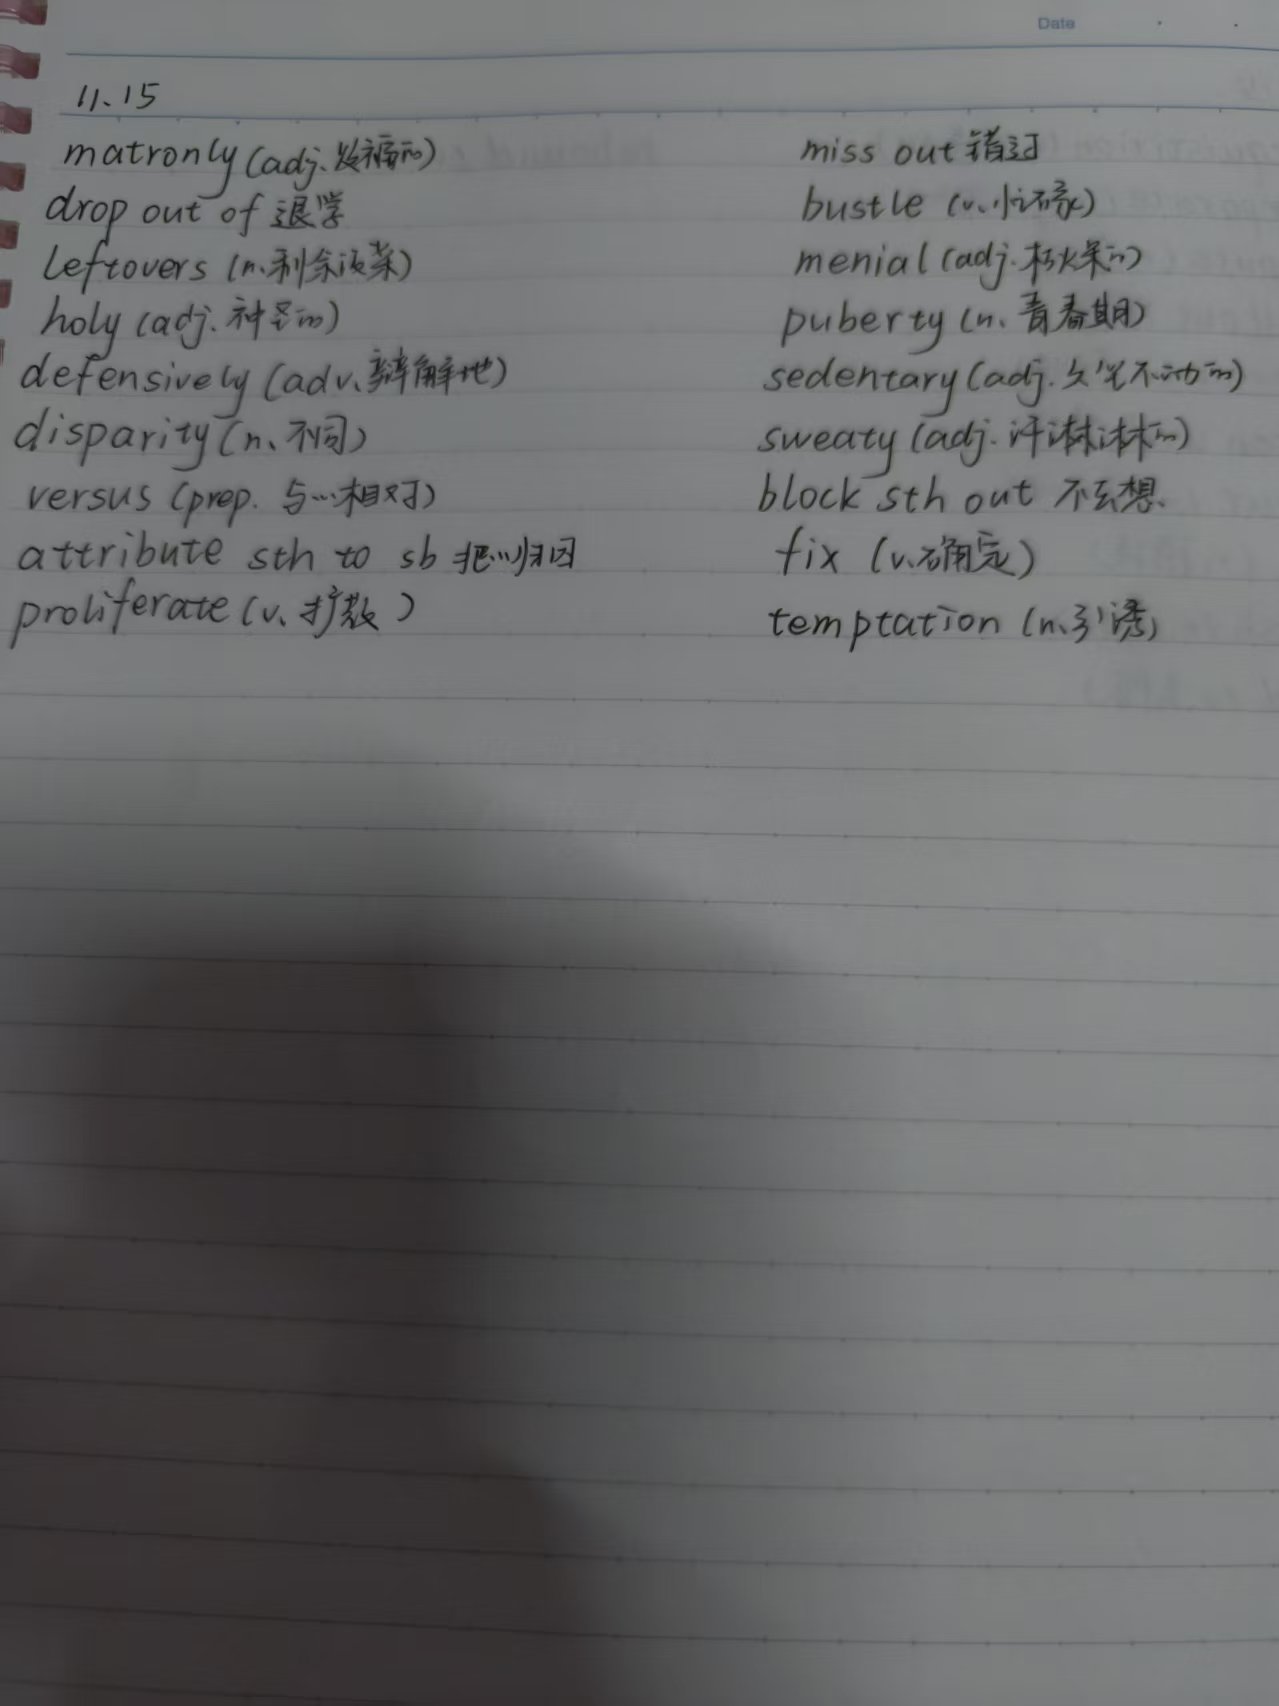 Date
11.15
matronly (adj. 发福的)
drop out of 退学
leftovers (n. 剩余饭菜)
holy (adj. 神圣的)
defensively (adv. 辩解地)
disparity (n. 不同)
versus (prep. 与…相对)
attribute sth to sb 把…归因
proliferate (v. 扩散)
miss out 错过
bustle (v. 忙碌)
menial (adj. 枯燥的)
puberty (n. 青春期)
sedentary (adj. 久坐不动的)
sweaty (adj. 汗淋淋的)
block sth out 不去想.
fix (v. 确定)
temptation (n. 引诱)